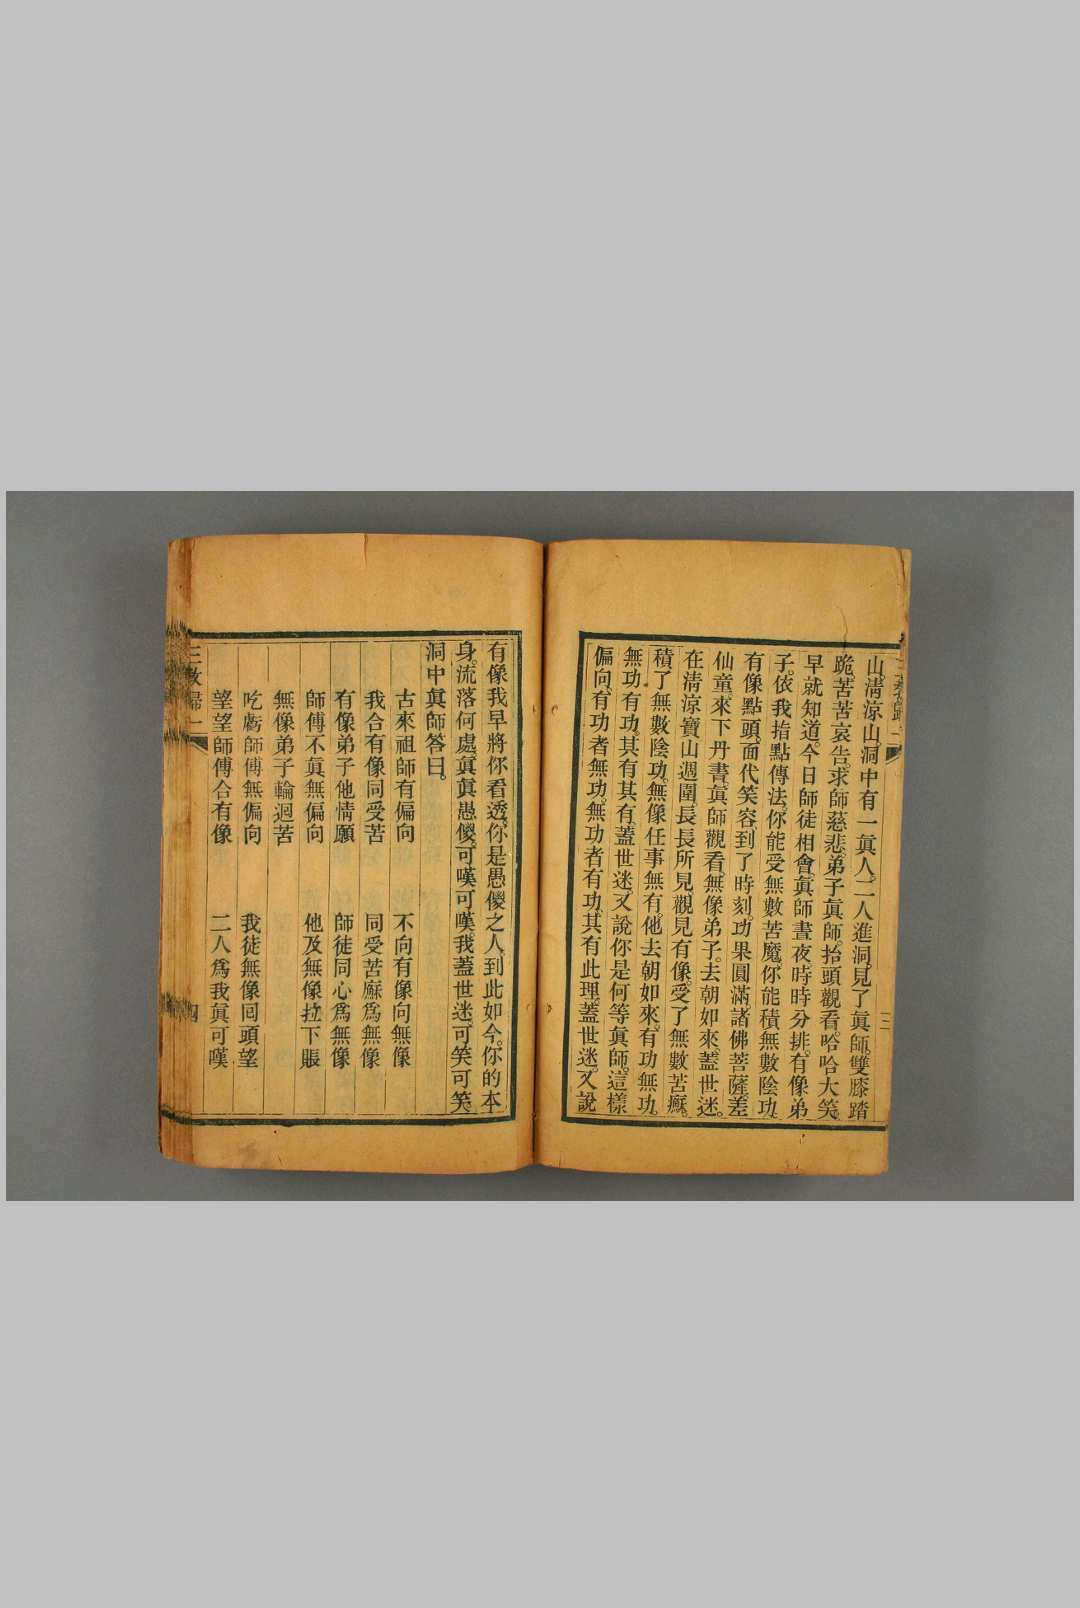 山。淸涼山洞中有一眞人。二人進洞。見了眞師。雙膝踏
跪。苦苦哀告。求師慈悲。弟子眞師。抬頭觀看。哈哈大笑。
早就知道。今日師徒相會。眞師晝夜時時分排。有像弟
子。依我指點傳法。你能受無數苦魔。你能積無數陰功。
有像點頭。面代笑容。到了時刻。功果圓滿。諸佛菩薩。差
仙童。來下丹書。眞師觀看。無像弟子。去朝如來。蓋世迷。
在淸涼寶山。週圍長長所見。觀見有像。受了無數苦癬。
積了無數陰功。無像任事無有。他去朝如來。有功無功。
無功有功。其有其有。蓋世迷。又說你是何等眞師。這樣
偏向。有功者無功。無功者有功。其有此理。蓋世迷。又說
三
有像我早將你看透。你是愚儍之人。到此如今。你的本
身。流落何處。眞眞愚儍。可嘆可嘆。我蓋世迷。可笑可笑。
洞中眞師答曰。
古來祖師有偏向 不向有像向無像
我合有像同受苦 同受苦痲爲無像
有像弟子他情願 師徒同心爲無像
師傅不眞無偏向 他及無像拉下賬
無像弟子輪迴苦
吃虧師傅無偏向 我徒無像回頭望
望望師傅合有像 二人爲我眞可嘆
三敎歸一
四